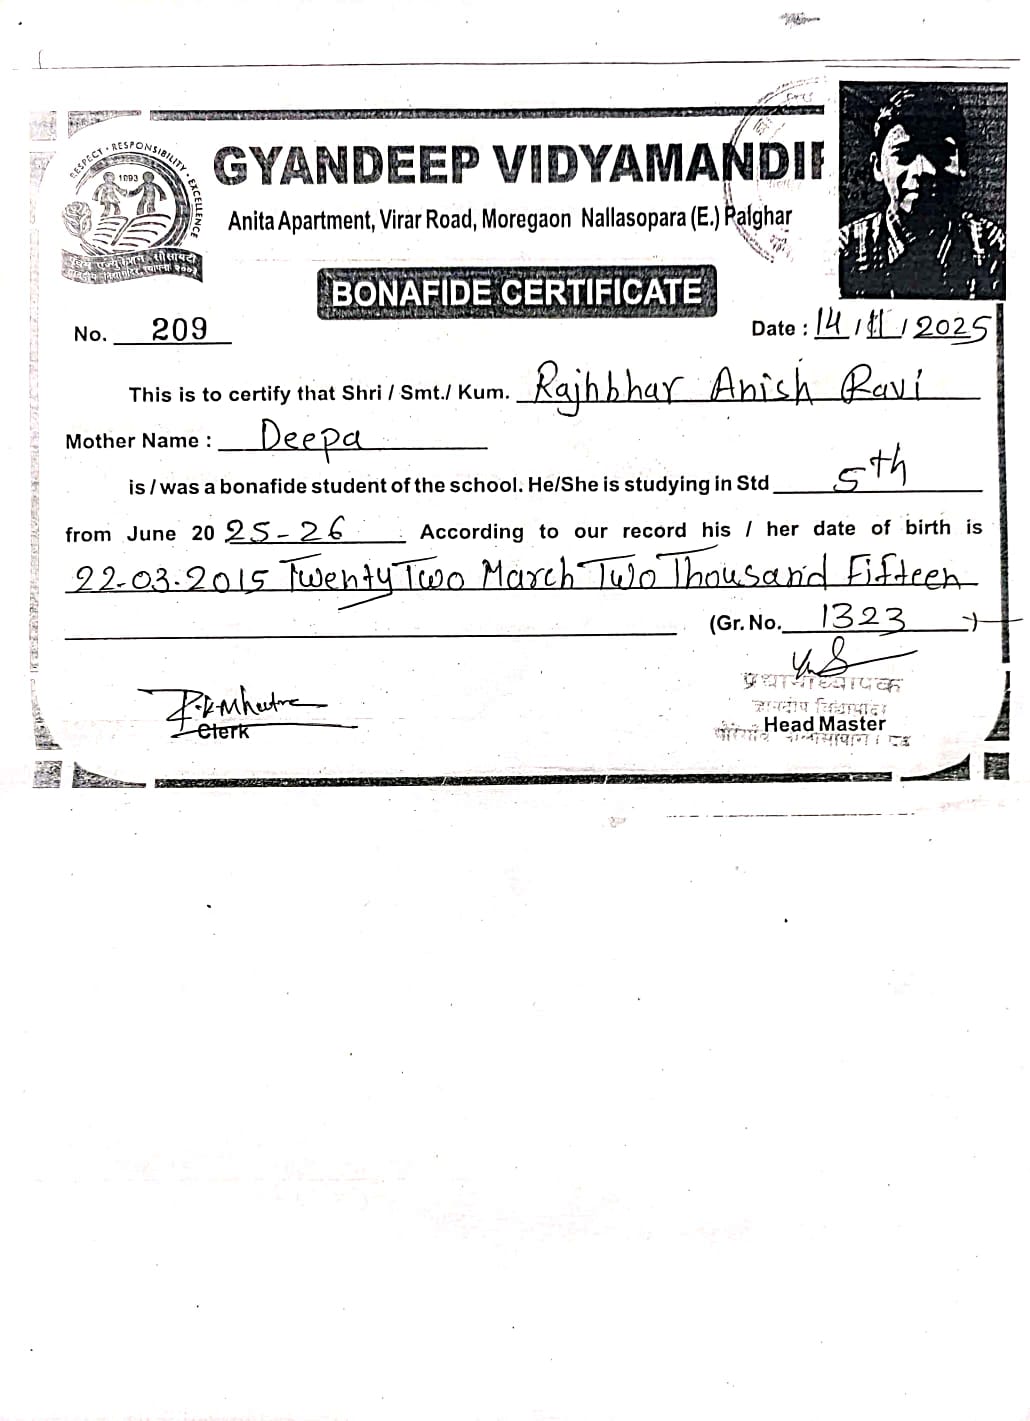 RESPECT · RESPONSIBILITY · EXCELLENCE
1893
GYANDEEP VIDYAMANDIR
Anita Apartment, Virar Road, Moregaon Nallasopara (E.) Palghar
BONAFIDE CERTIFICATE
No. 209
Date : 14 / 11 / 2025
This is to certify that Shri / Smt./ Kum. Rajhbhar Anish Ravi
Mother Name : Deepa
is / was a bonafide student of the school. He/She is studying in Std 5th
from June 20 25-26 According to our record his / her date of birth is
22-03-2015 Twenty Two March Two Thousand Fifteen
(Gr. No. 1323 )
प्रधानाध्यापक
Clerk
Head Master